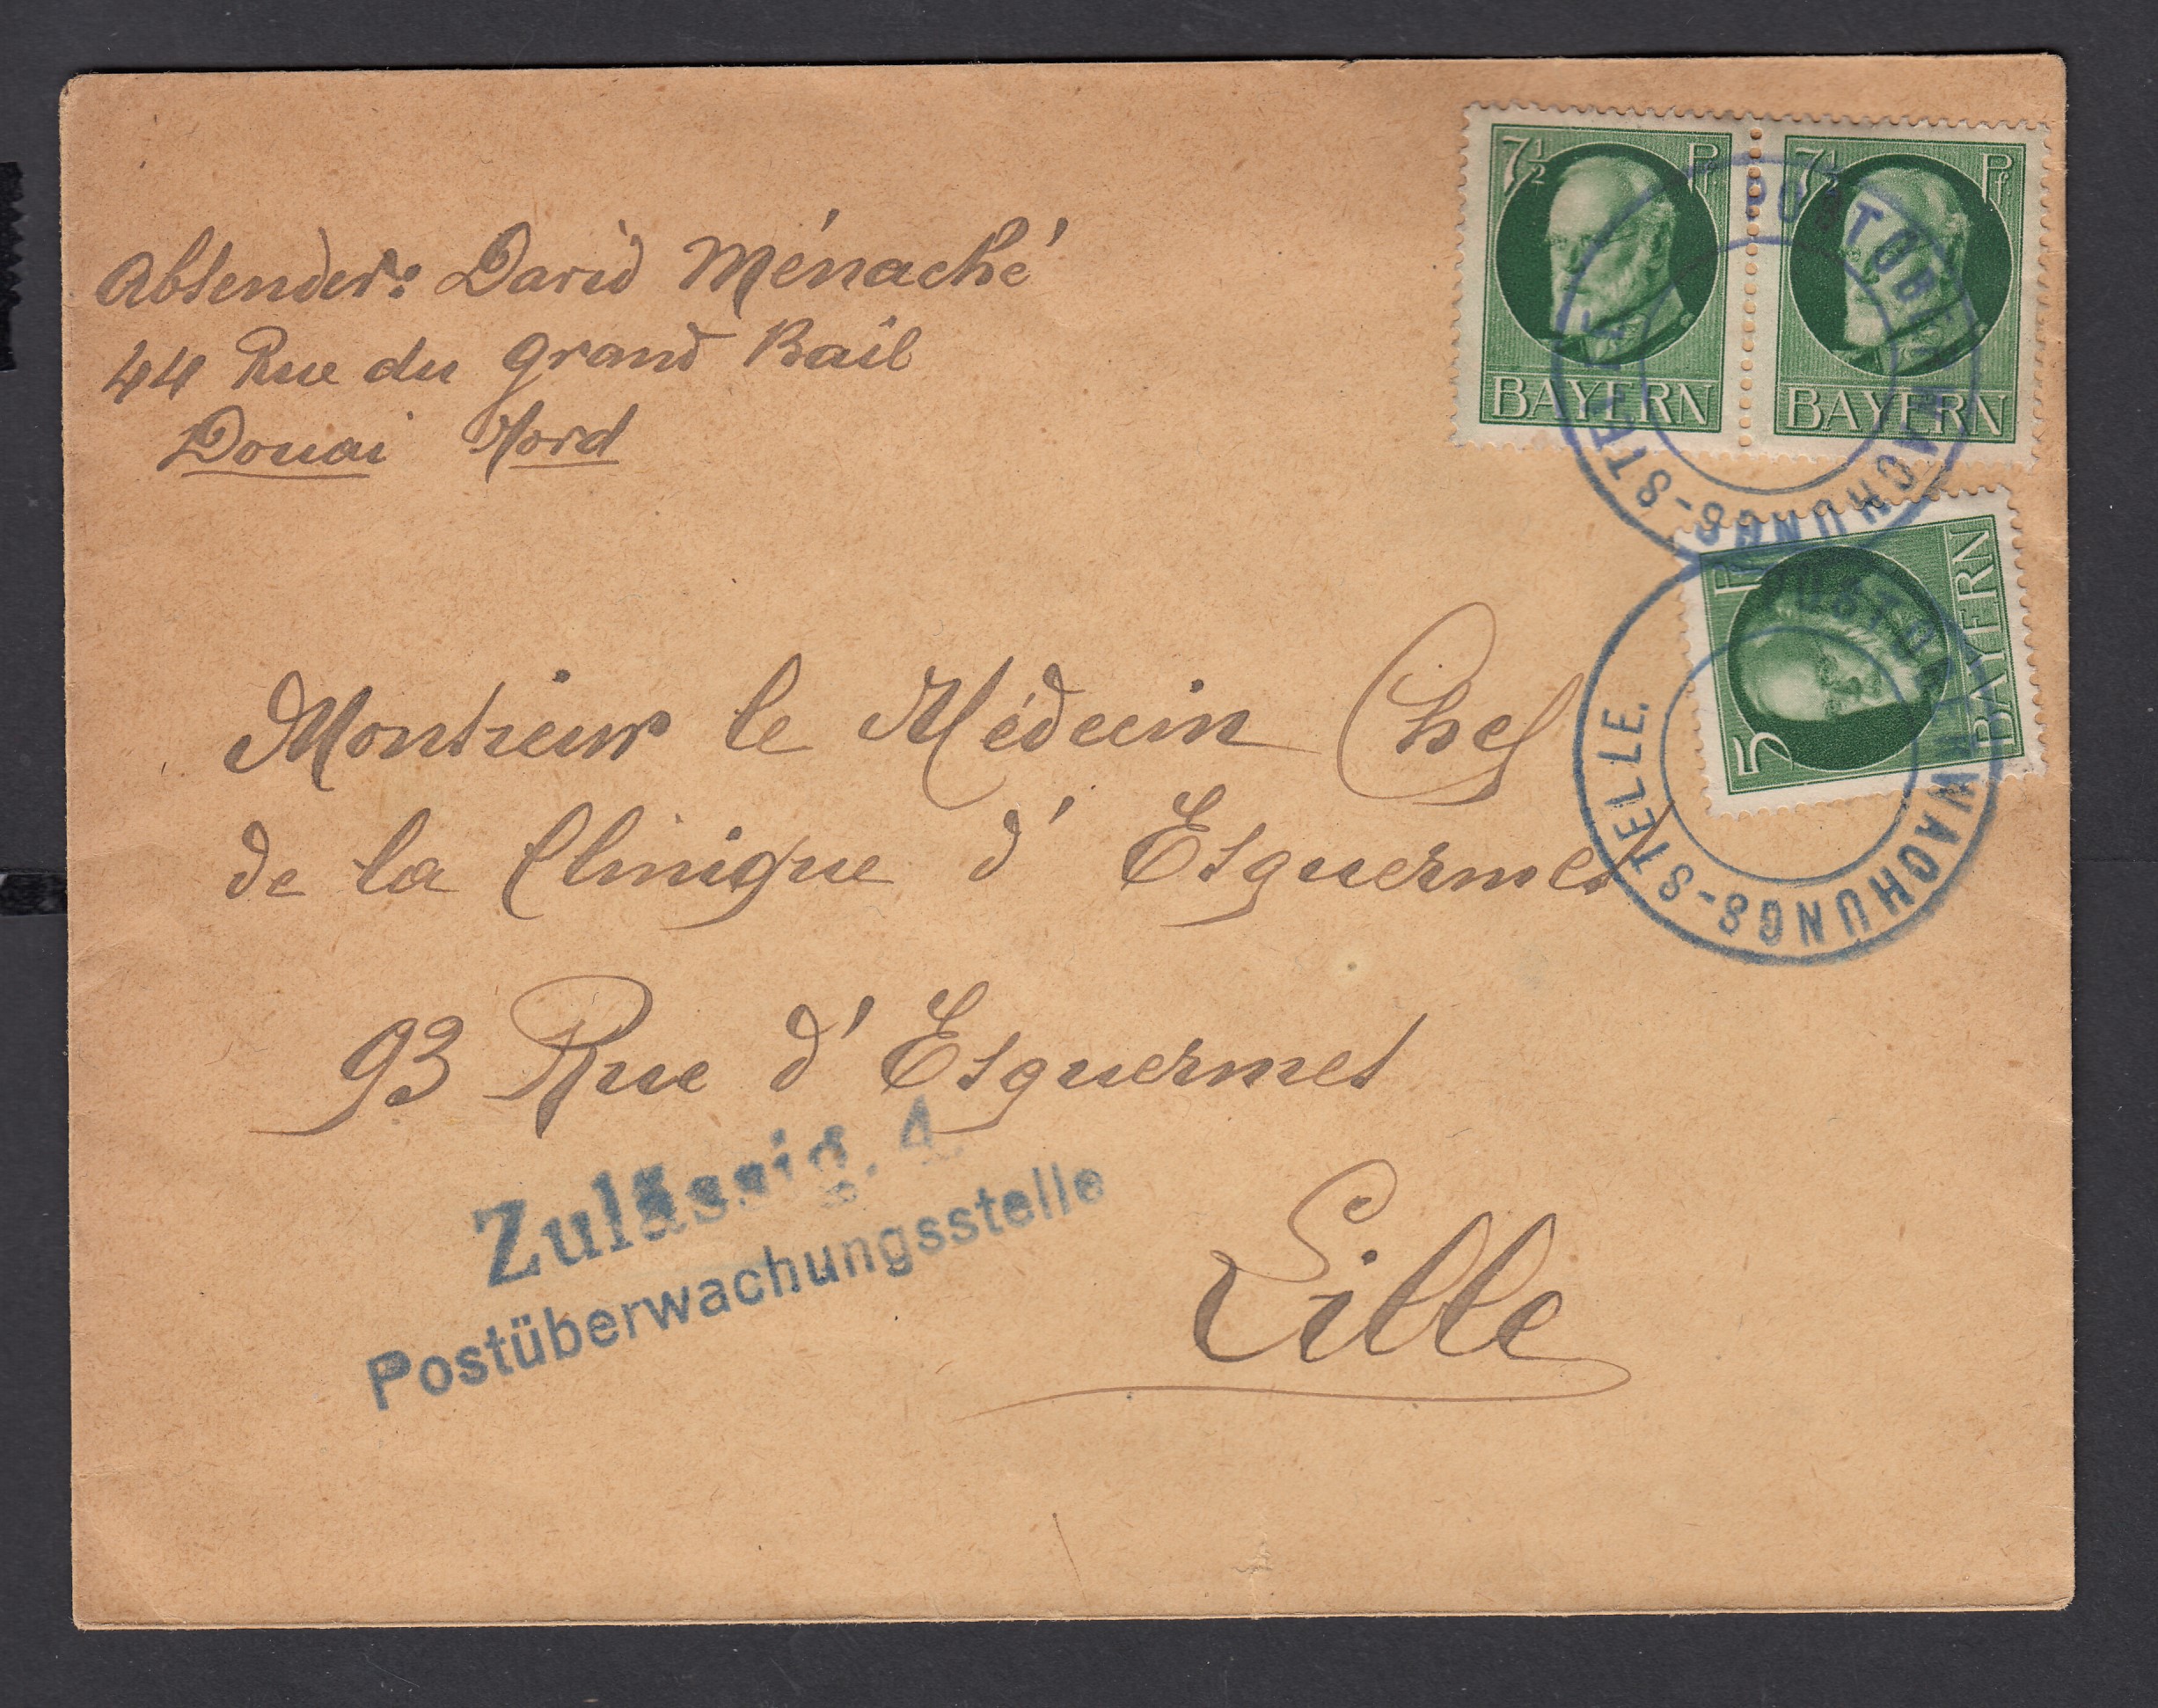 Absender: David Ménaché
44 Rue du Grand Bail
Douai Nord
7½ Pf
BAYERN
7½ Pf
BAYERN
POSTÜBERWACHUNGS-STELLE.
5 Pf
BAYERN
POSTÜBERWACHUNGS-STELLE.
Monsieur le Médecin Chef
de la Clinique d'Esquermes
93 Rue d'Esquermes
Zulässig. 4
Postüberwachungsstelle
Lille